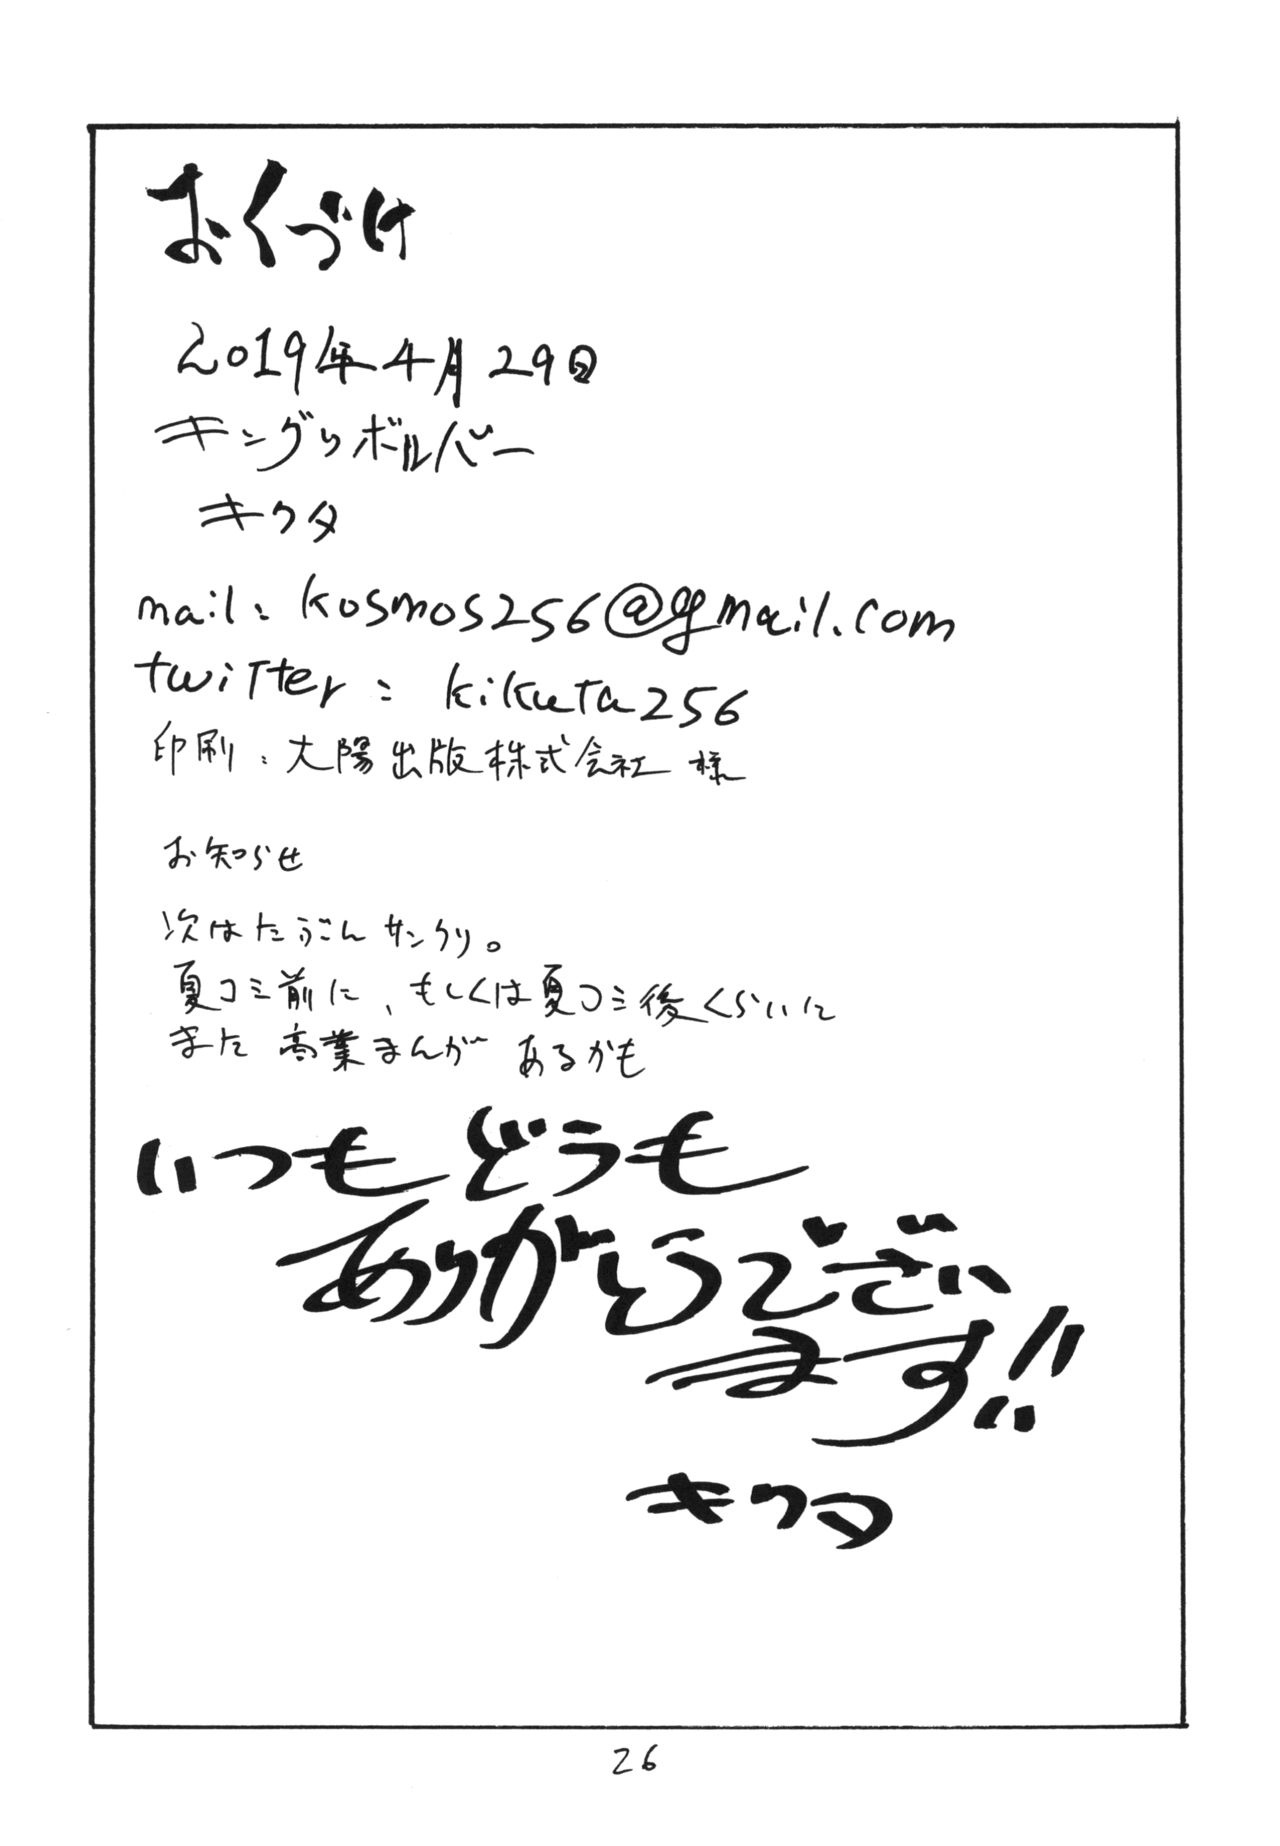 おくづけ
2019年4月29日
キングリボルバー
キクタ
mail: kosmos256@gmail.com
twitter: kikuta256
印刷:大陽出版株式会社 様
お知らせ
次はたぶんサンクリ。
夏コミ前に、もしくは夏コミ後くらいに
また商業まんがあるかも
いつもどうも
ありがとうござい
ます!!
キクタ
26